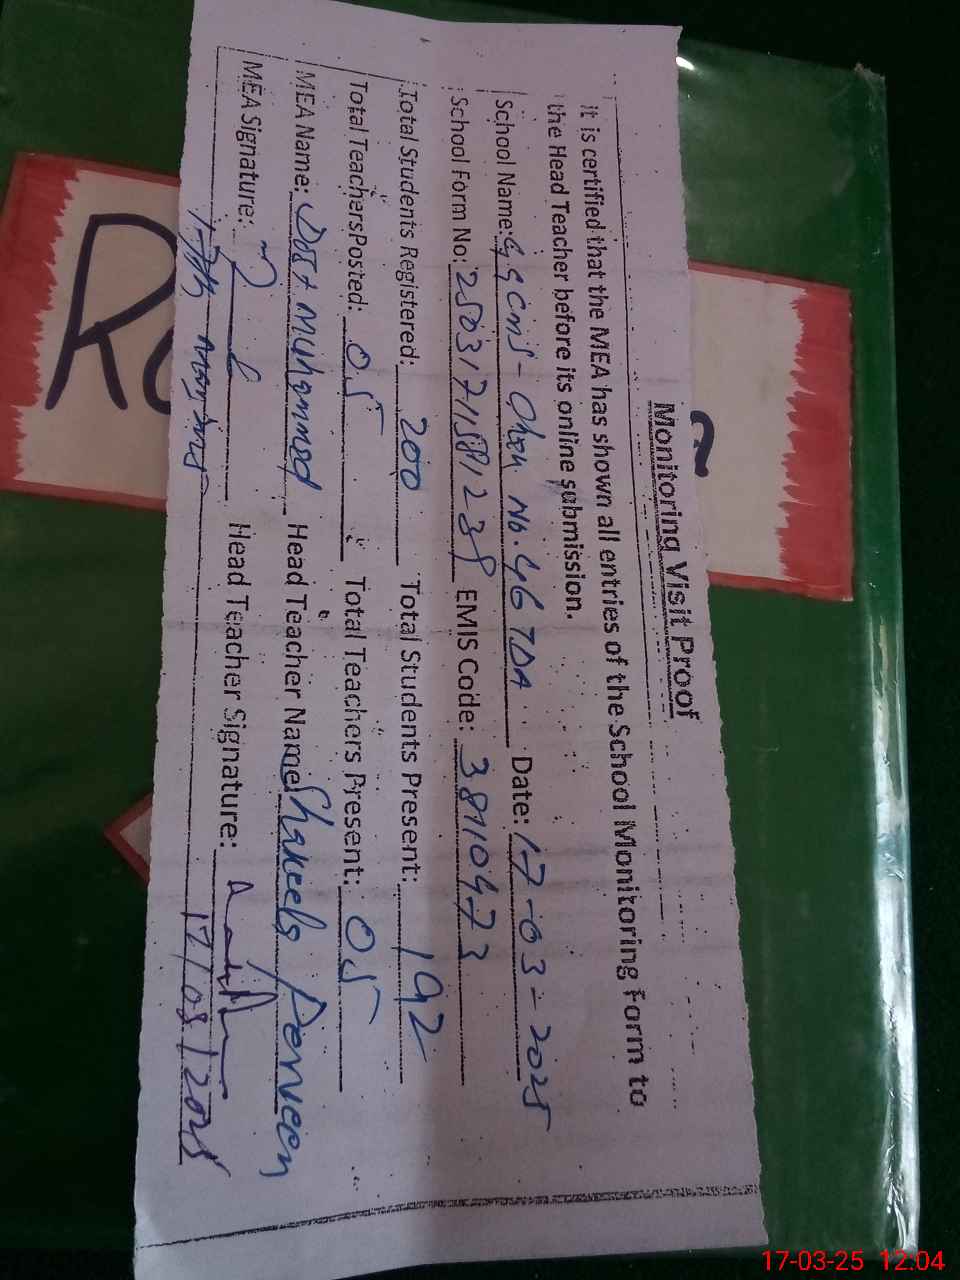 Monitoring Visit Proof
it is certified that the MEA has shown all entries of the School Monitoring Form to
the Head Teacher before its online submission.
School Name: GGCMS - Chak No. 46 TDA Date: 17-03-2025
School Form No: EMIS Code:
Total Students Registered: 200 Total Students Present: 192
Total Teachers Posted: 05 Total Teachers Present: 05
MEA Name: Dost Muhammed Head Teacher Name: Shakeela Perveen
MEA Signature: Head Teacher Signature:
17/03/2025
17-03-25 12:04